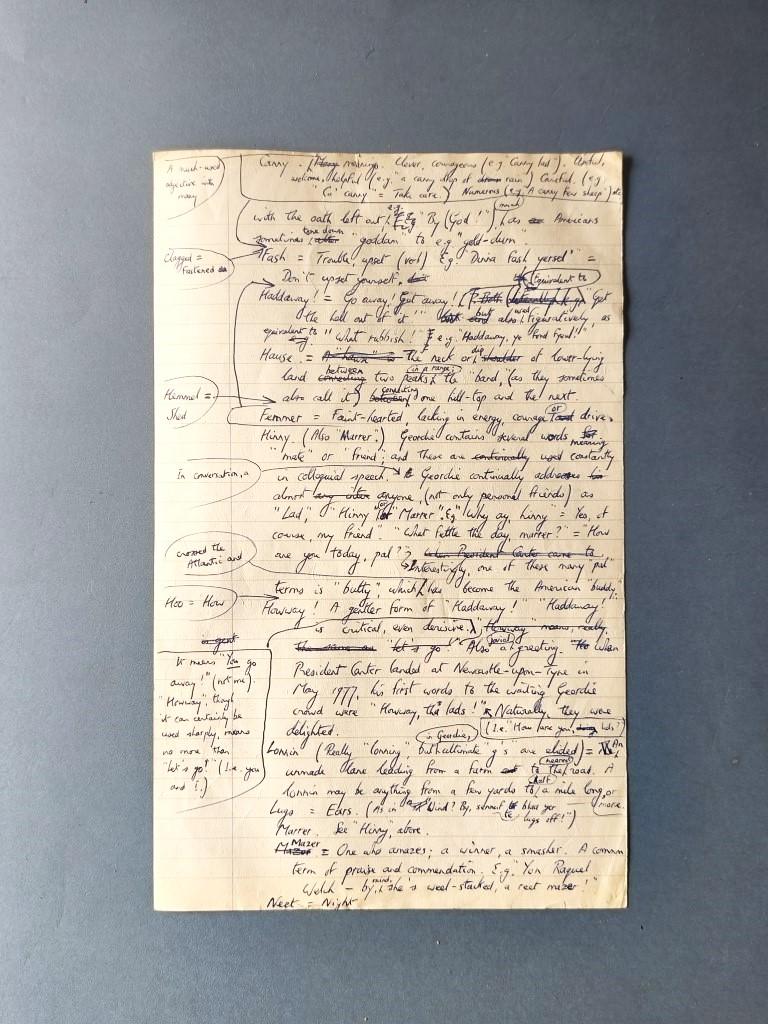 A much-used
adjective with
many
Canny. (Many meanings. Clever, courageous (e.g. "Canny lad"). Useful,
welcome, helpful (e.g. "a canny drop of rain) Careful. (e.g.
"Ca' canny" = Take care) Numerous (e.g. "A canny few sheep") etc
with the oath left out, e.g. "By (God!") much as Americans
sometimes tone down "goddam" to e.g. "gold-durn".
Clagged =
Fastened
Fash = Trouble, upset (verb) E.g. "Dinna fash yersel'" =
Don't upset yourself.
Haddaway! = Go away! Get away! (Both literally Equivalent to "Get
the hell out of it" but also used, figuratively, as
equivalent to "What rubbish!" e.g. "Haddaway, ye fond fyeul!"
Hause. = A "hause" is the neck or dip shoulder of lower-lying
land connecting between two peaks in a range; the "band", (as they sometimes
also call it) between connecting one hill-top and the next.
Hemmel =
Shed
Femmer = Faint-hearted, lacking in energy, courage or drive.
Hinny. (Also "Marrer".) Geordie contains several words for meaning
"mate" or "friend"; and these are continually used constantly
in colloquial speech. Geordie continually addresses his
In conversation, a
almost any other anyone, (not only personal friends) as
"Lad," "Hinny" or "Marrer". E.g. "Why ay, hinny" = Yes, of
course, my friend". "What fettle the day, marrer?" = "How
are you today, pal"? When President Carter came to
Interestingly, one of these many "pal"
crossed the
Atlantic and
terms is "butty", which has become the American "buddy".
Hoo = How
Howway! A gentler form of "Haddaway!" "Haddaway!"
is critical, even derisive. "Howway" means, really,
the same as "let's go!" Also a jovial greeting. When
President Carter landed at Newcastle-upon-Tyne in
May 1977, his first words to the waiting Geordie
crowd were "Howway, the lads!" Naturally, they were
delighted. (I.e. "How are you, lads?")
or gent
It means "You go
away!" (not me).
"Howway", though
it can certainly be
used sharply, means
no more than
"Let's go!" (I.e. you
and I.)
Lonnin (Really "lonning", but in Geordie, ultimate 'g's are elided) = An
unmade lane leading from a farm to the nearest road. A
lonnin may be anything from a few yards to half a mile long, or more.
Lugs = Ears. (As in "Wind? By, summat to blaa yer
lugs off!")
Marrer. See "Hinny", above.
Mazer = One who amazes; a winner, a smasher. A common
term of praise and commendation. E.g. "Yon Raquel
Welch – by, mind, she's weel-stacked, a reet mazer!"
Neet = Night